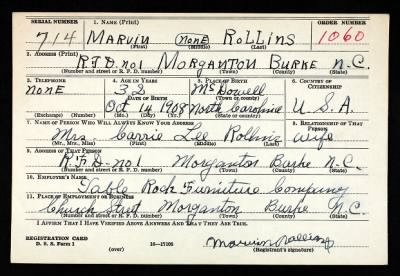 SERIAL NUMBER 1. NAME (Print) ORDER NUMBER
714 MARVIN (NONE) ROLLINS 1060
(First) (Middle) (Last)
2. ADDRESS (Print)
R.F.D. NO1 MORGANTON BURKE N.C.
(Number and street or R. F. D. number) (Town) (County) (State)
3. TELEPHONE 4. AGE IN YEARS 5. PLACE OF BIRTH 6. COUNTRY OF CITIZENSHIP
NONE 32 McDowell
DATE OF BIRTH (Town or county)
Oct 14 1908 North Carolina U.S.A.
(Exchange) (Number) (Mo.) (Day) (Yr.) (State or country)
7. NAME OF PERSON WHO WILL ALWAYS KNOW YOUR ADDRESS 8. RELATIONSHIP OF THAT PERSON
Mrs. Carrie Lee Rollins Wife
(Mr., Mrs., Miss) (First) (Middle) (Last)
9. ADDRESS OF THAT PERSON
R.F.D-no1 Morganton Burke N.C.
(Number and street or R. F. D. number) (Town) (County) (State)
10. EMPLOYER'S NAME
Table Rock Furniture Company
11. PLACE OF EMPLOYMENT OR BUSINESS
Church Street Morganton Burke N.C.
(Number and street or R. F. D. number) (Town) (County) (State)
I AFFIRM THAT I HAVE VERIFIED ABOVE ANSWERS AND THAT THEY ARE TRUE.
REGISTRATION CARD
D. S. S. Form 1 (over) 16—17105 Marvin Rollins
(Registrant's signature)